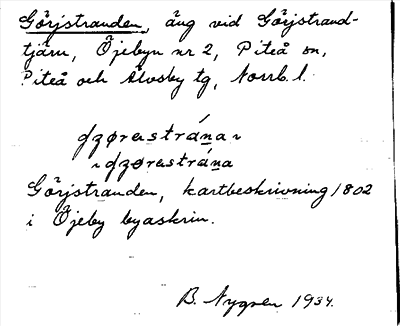 Görjstranden, äng vid Görjstrand-
tjärn, Öjebyn nr 2, Piteå sn,
Piteå och Älvsby tg, Norrb. l.
ɟzørastrána
ɟzørastrána
Görjstranden, kartbeskrivning 1802
i Öjeby byaskrin.
B. Nygren 1934.